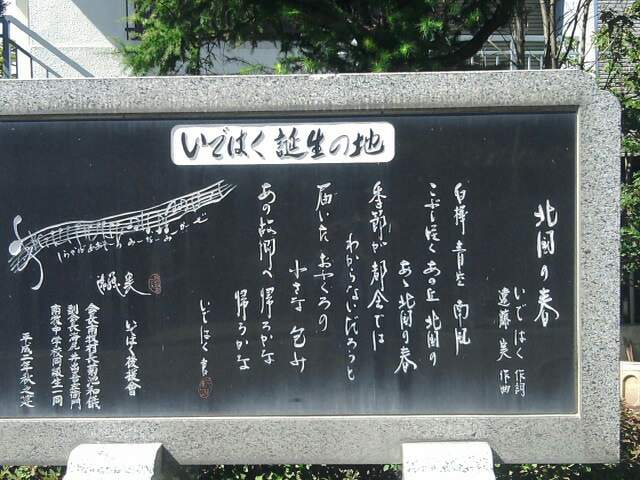 いではく誕生の地
北国の春
いではく 作詞
遠藤 実 作曲
白樺 青空 南風
こぶし咲く あの丘 北国の
あゝ 北国の春
季節が都会では
わからないだろうと
届いた おふくろの
小さな 包み
あの故郷へ 帰ろかな
帰ろかな
いではく 書
しらかばあおぞーらみーなーみかーぜ
遠藤 実
いではく後援会
会長南牧村長菊池和哉
南牧中学校同級生一同
平成二年秋之建